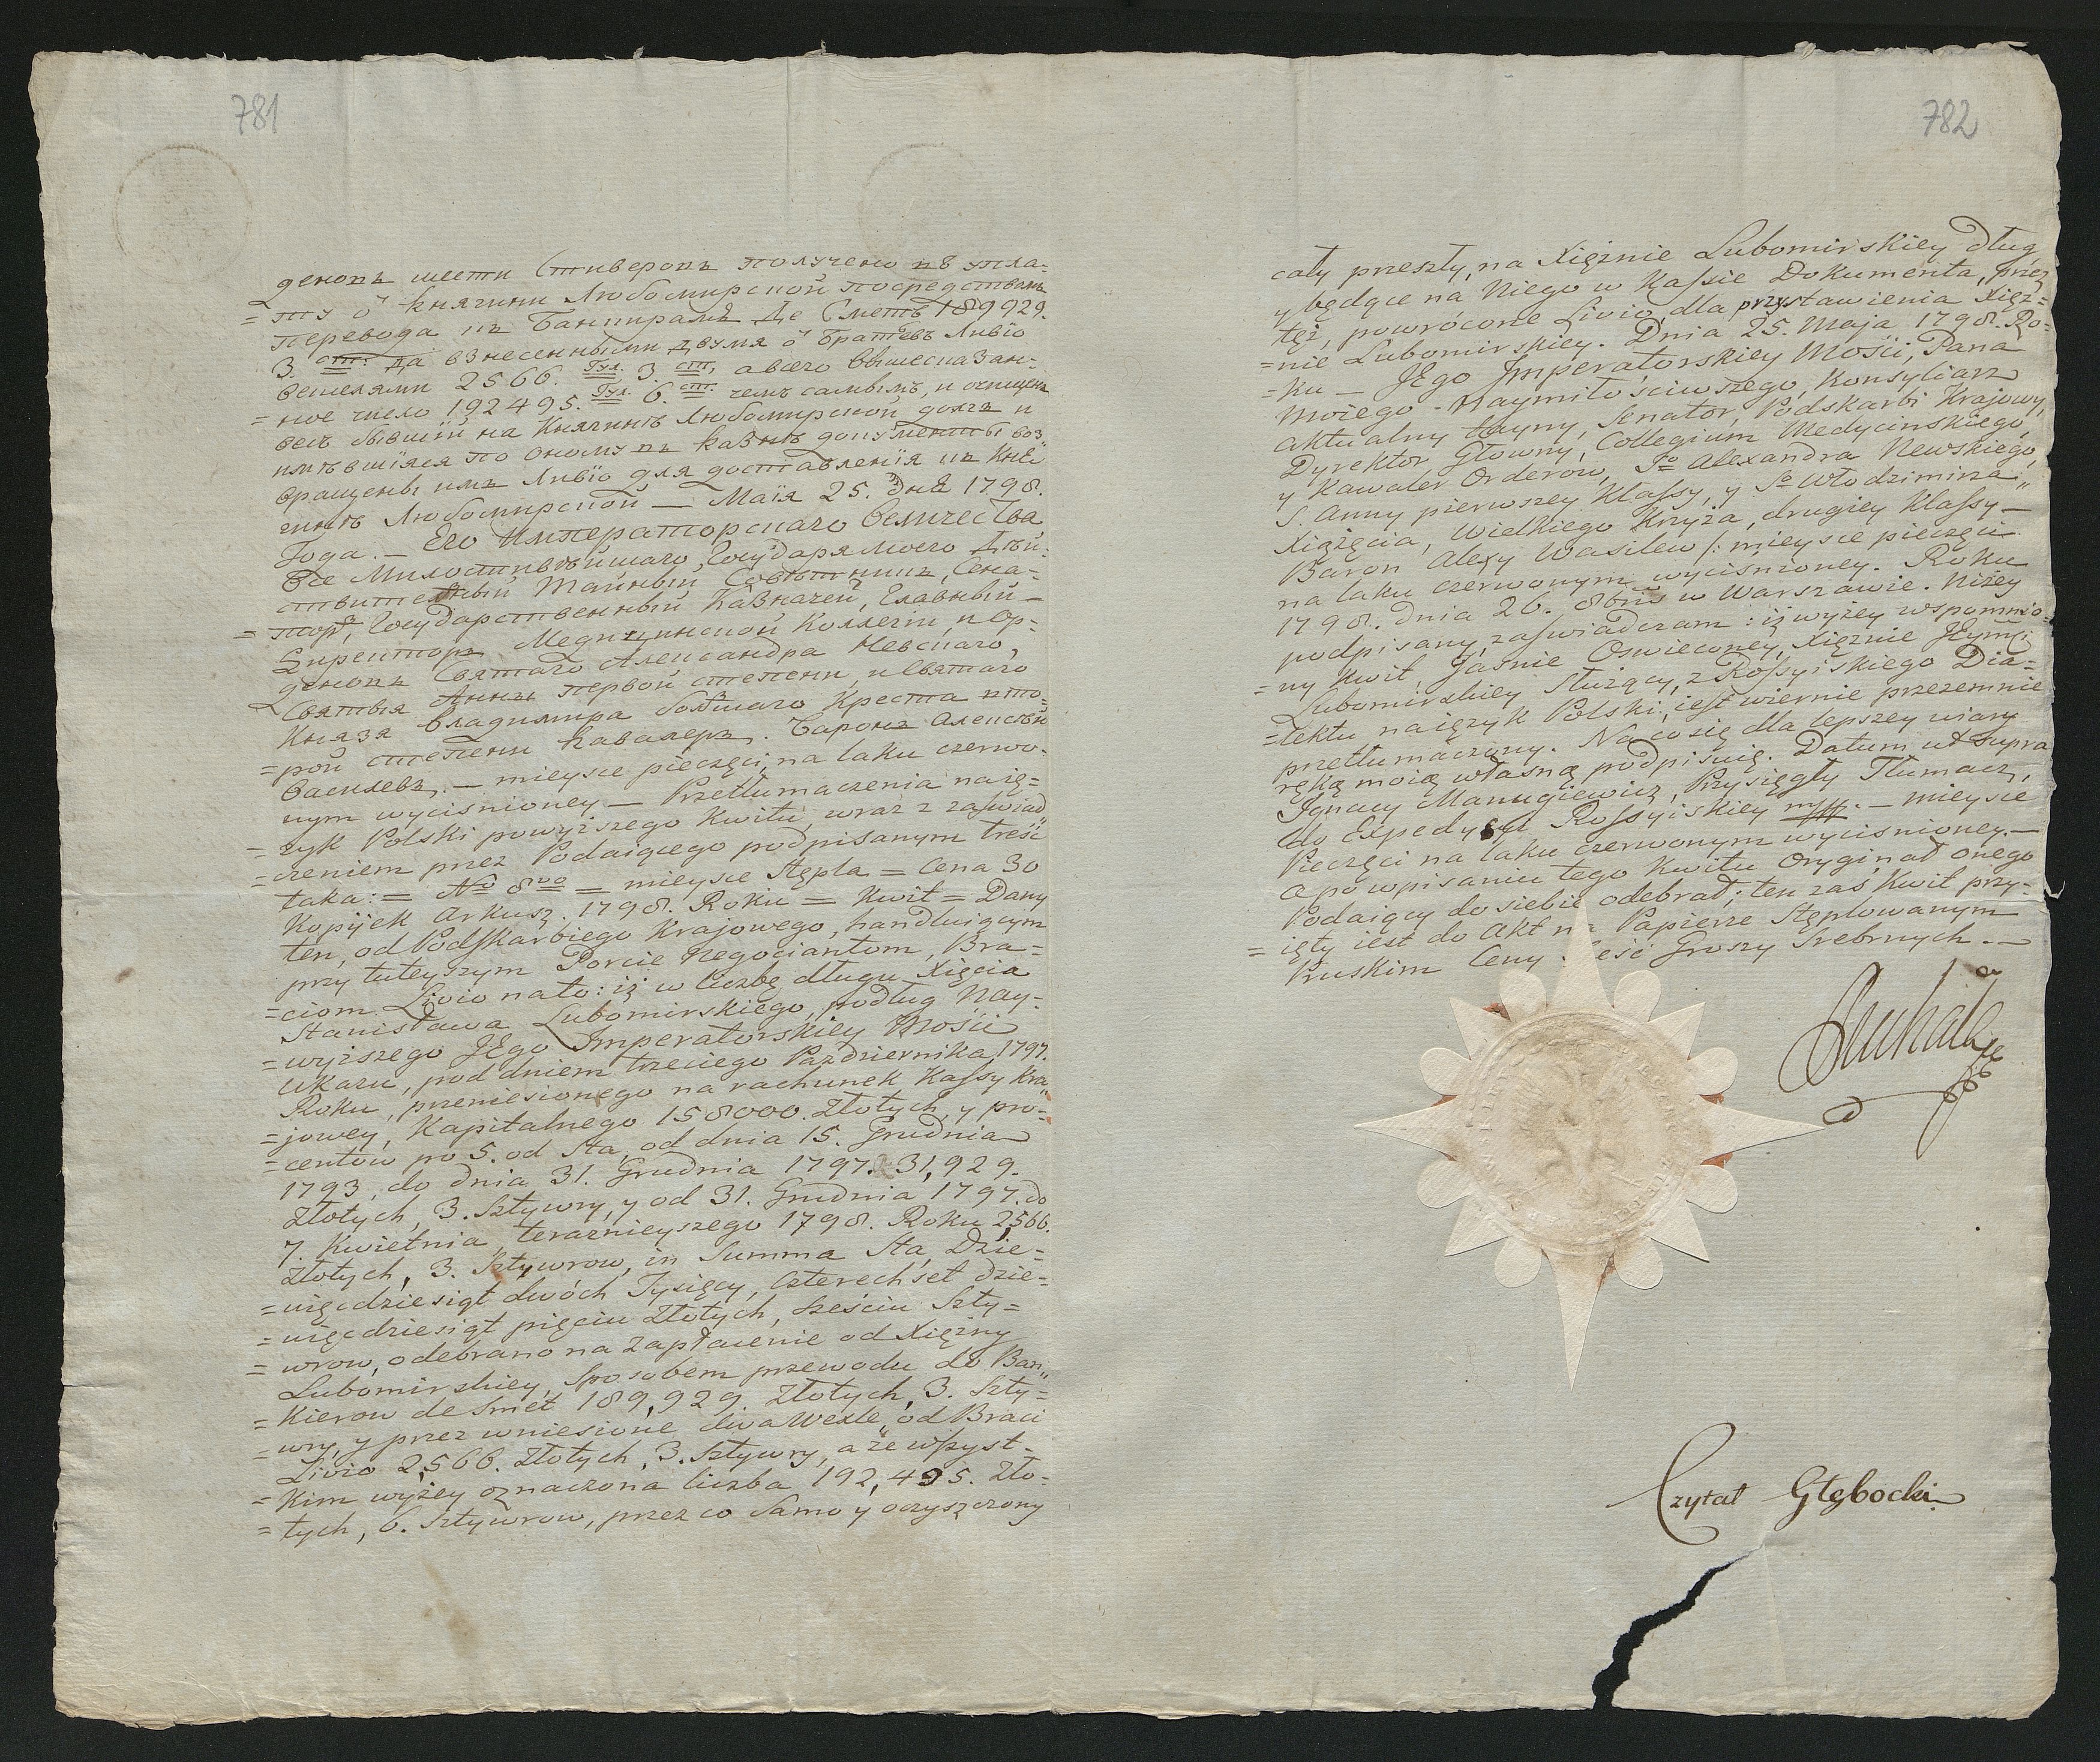 781
деновъ шести Стиверовъ получено въ упла-
=ту ѿ Княгини Любомирской посредствомъ
перевода къ Банкирамъ Де Сметъ 189929.
3. ст: да взнесенными двумя ѿ Братьевъ Ливіо
векселями 2566. Гул. 3. ст, а всего вышесказан-
=ное число 192495. Гул. 6. ст. чемъ самымъ, и очищенъ
весь бывшій на Княгинѣ Любомирской долгъ и
имѣвшіяся по оному въ Казнѣ документы воз-
вращены имъ Ливіо для доставленія къ Кня-
гинѣ Любомирской — Маія 25. дня 1798.
Года. — Его Императорскаго Величества
Все Милостивѣйшаго, Государя Моего Дѣй-
ствительный Тайный Совѣтникъ, Сена-
=торъ, Государственный Казначей, Главный
Директоръ Медицинской Коллегіи, и Ор-
деновъ Святаго Александра Невскаго,
Святыя Анны первой степени, и Святаго
Князя Владимира большаго Креста вто-
=рой степени Кавалеръ. Баронъ Алексѣй
Васильевъ. — mieysce pieczęci, na laku czerwo-
nym wyciśnioney — Przetłumaczenia na ię=
=zyk Polski powyższego Kwitu, wraz z zaświad„
=czeniem przez Podaiącego podpisanym treść
taka: = No 8vo = mieysce Stępla = Cena 30
Kopijek Arkusz. 1798. Roku = Kwit = Dany
ten, od Podskarbiego Krajowego, handluiącym
przy tuteyszym Porcie Negociantom, Bra=
=ciom Livio na to: iż w liczbę długu Xięcia
Stanisława Lubomirskiego, podług Nay-
=wyższego JEgo Imperatorskiey Mości
Ukazu, pod dniem trzeciego Października, 1797.
Roku, przeniesionego na rachunek Kassy Kra„
=jowey, Kapitalnego 158000. Złotych, y pro-
=centów po 5. od Sta, od dnia 15. Grudnia
1793, do dnia 31. Grudnia 1797. 31,929.
Złotych, 3. Sztywry, y od 31. Grudnia 1797. do
7. Kwietnia, teraznieyszego 1798. Roku 2,566.
Złotych, 3. Sztywrow, in Summa Sta, Dzie=
=więdziesiąt dwóch Tysięcy, czterechset dzie=
=więdziesiąt pięciu Złotych, sześciu Szty=
=wrow, odebrano na Zapłacenie od Xiężny
Lubomirskiey, sposobem przewodu do Ban„
=kierow de Smet 189,929. Złotych, 3. Szty=
=wry, y przez wniesione dwa Wexle, od Braci
Livio 2,566. Złotych, 3. Sztywry, a że wszyst=
=kim wyżey oznaczona liczba 192,495. Zło-
=tych, 6. Sztywrow, przez co Samo y oczyszczony
782
cały przeszły, na Xiężnie Lubomirskiey dług
y będące na Niego w Kassie Dokumenta, przez
też, powrócone Livio, dla przystawienia Xięż=
=nie Lubomirskiey. Dnia 25. Maja 1798. Ro-
=ku — JEgo Imperatorskiey Mości, Pana
Moiego - Naymiłościwszego, Konsyliarz
aktualny tayny, Senator, Podskarbi Krajowy,
Dyrektor Głowny, Collegium Medycinskiego,
y Kawaler Orderow, So Alexandra Newskiego,
S. Anny pierwszey Klassy, y So Włodzimirza„
Xiążęcia, Wielkiego Krzyża, drugiey Klassy —
Baron Alexy Wasilew /: mieysce pieczęci
na laku czerwonym wyciśnioney. Roku
1798. Dnia 26. 8bris w Warszawie. Niżey
podpisany, zaświadczam: iż wyżey wspomnio-
=ny Kwit, Jaśnie Oświeconey, Xiężnie JEymci
Lubomirskiey służący, z Rossyiskiego Dia=
=lektu na ięzyk Polski, iest wiernie przezemnie
przetłumaczony. Na co się dla lepszey wiary
ręką moią własną podpisuię. Datum ut supra
Ignacy Manugiewicz, Przysięgły Tłumacz,
do Expedycyi Rossyiskiey mpp. — mieysce
Pieczęci na laku czerwonym wyciśnioney. —
a po wpisaniu tego Kwitu Oryginał onego
Podaiący do siebie odebrał; ten zaś Kwit przy-
=ięty iest do Akt na Papierze Stęplowanym
Pruskim Ceny Sześć Groszy Srebrnych. —
Czytał Głębocki